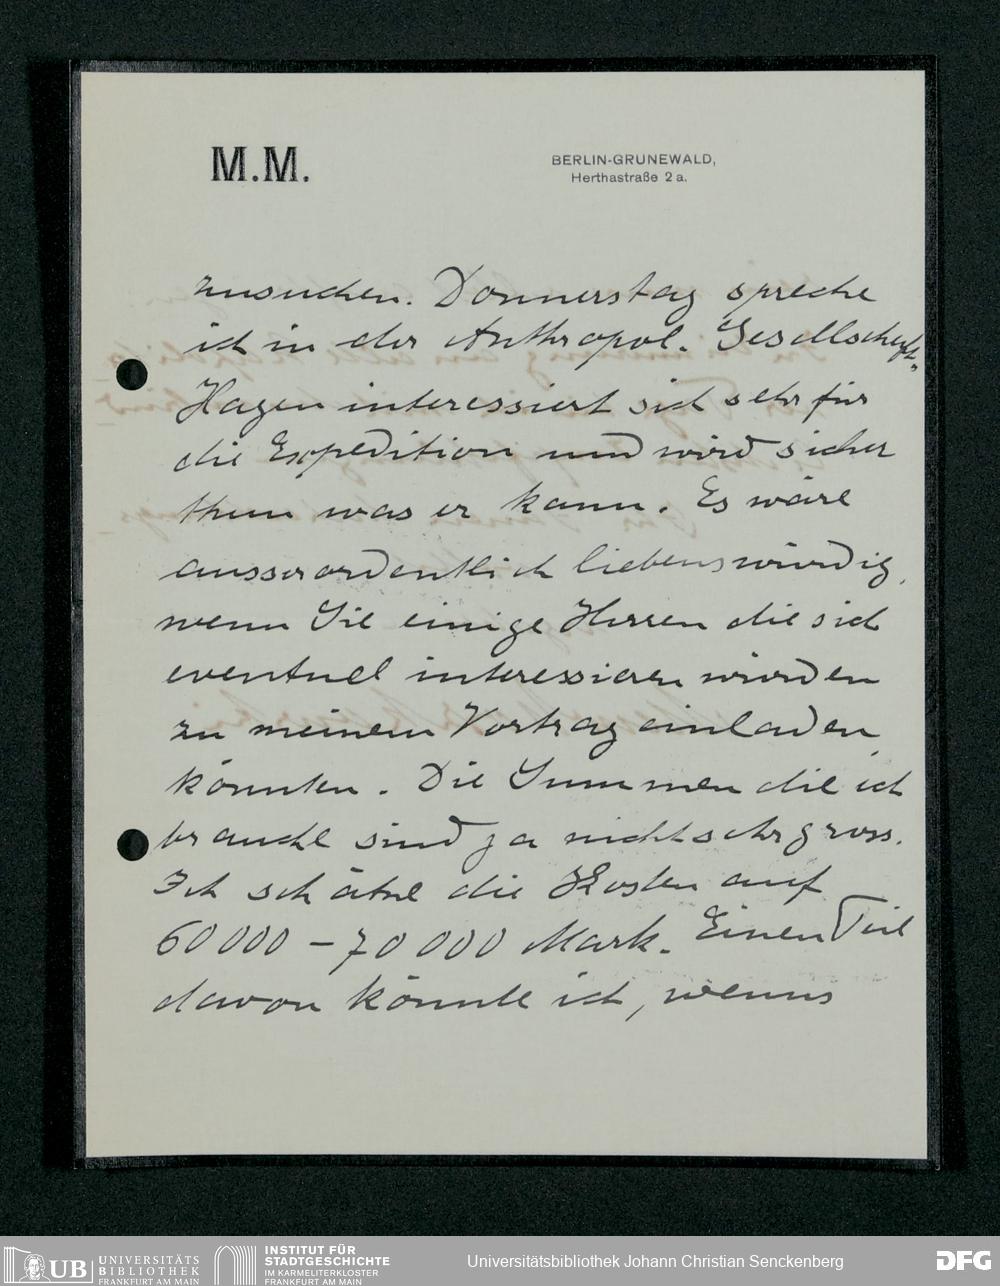 M.M.
BERLIN-GRUNEWALD,
Herthastraße 2 a.
zusuchen. Donnerstag spreche
ich in der Anthropol. Gesellschaft.
Hagen interessiert sich sehr für
die Expedition und wird sicher
thun was er kann. Es wäre
ausserordentlich liebenswürdig,
wenn Sie einige Herren die sich
eventuel interessieren würden
zu meinem Vortrag einladen
könnten. Die Summen die ich
brauche sind ja nicht sehr gross.
Ich schätze die Kosten auf
60 000 – 70 000 Mark. Einen Teil
davon könnte ich, wenns
UB UNIVERSITÄTS
BIBLIOTHEK
FRANKFURT AM MAIN
INSTITUT FÜR
STADTGESCHICHTE
IM KARMELITERKLOSTER
FRANKFURT AM MAIN
Universitätsbibliothek Johann Christian Senckenberg
DFG